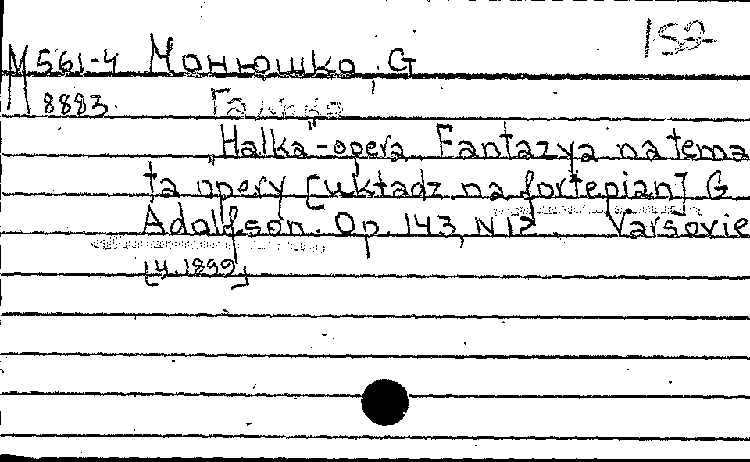 152
M 561-4 Монюшко, G
8883. Галька
"Halka"-opera Fantazya na tema
ta opery [układz na fortepian] G
Adolfson. Op. 143, N 12 Varsovie
[ц. 1899]